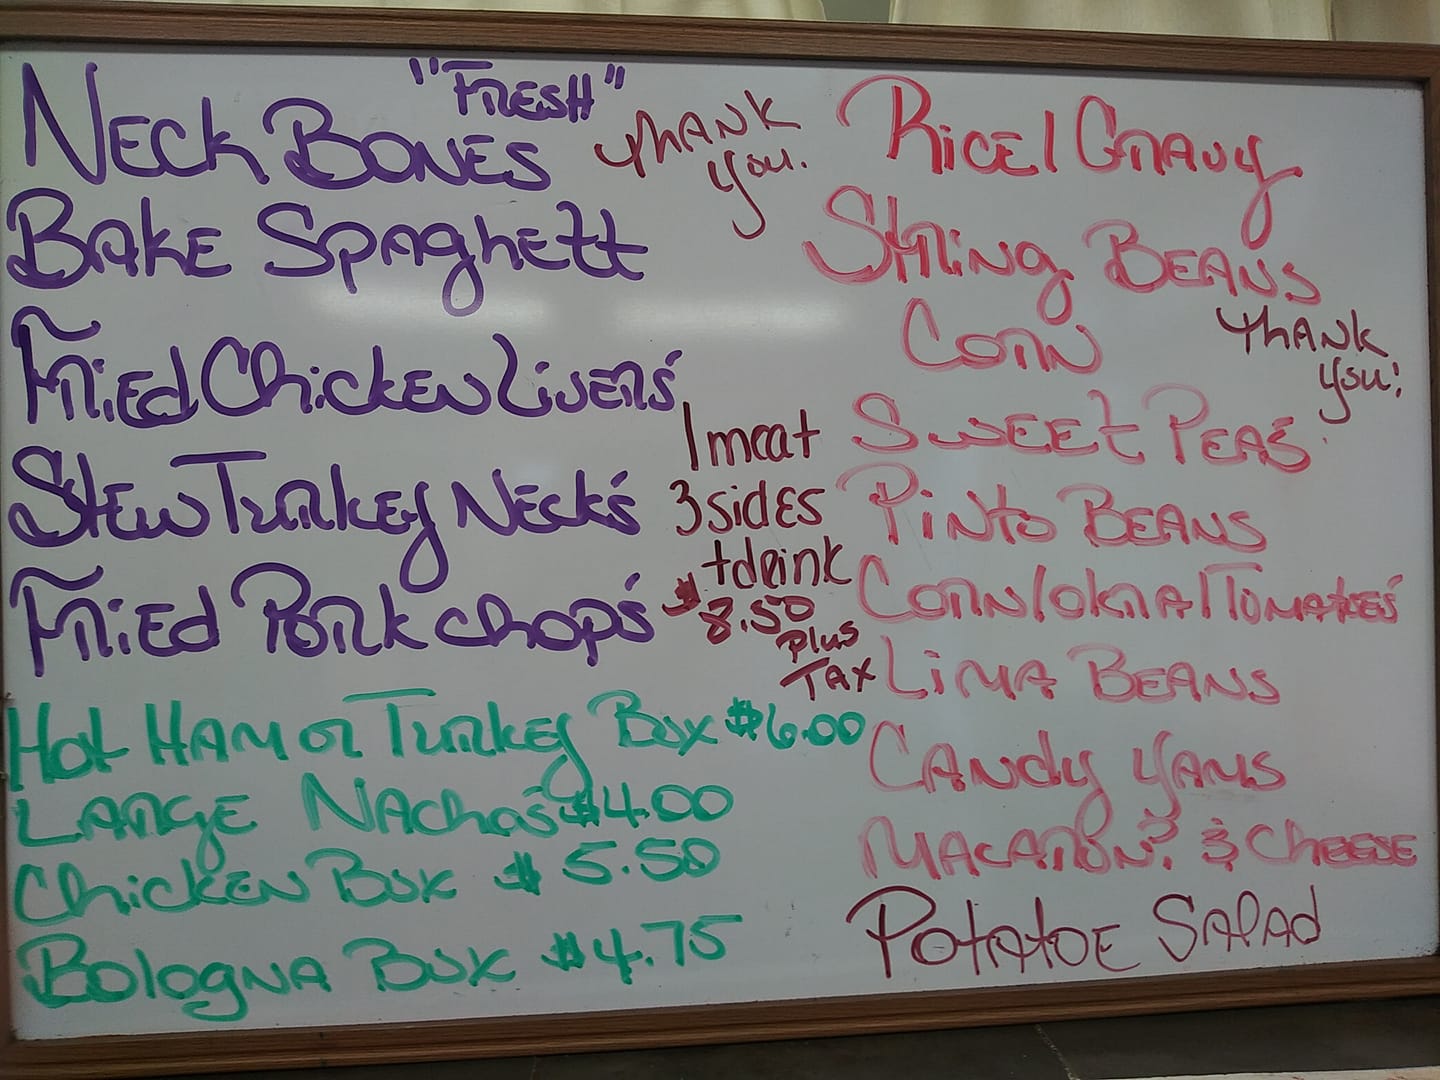 "FRESH"
NECK BONES
BAKE SpAghEtt
FRiEd ChickEN LivERs'
StEw TuRkEy NEck's
FRiEd PORk chop's
THANK
you.
1 meat
3 sides
+ drink
$8.50
plus
TAX
Hot HAM oR TuRkEy Box $6.00
LARgE NAcho's $4.00
ChickEN Box $5.50
BologNA Box $4.75
RicE/GRAvy
StRiNg BEANS
CoRN
THANK
you!
SwEEt PEAs'
PiNto BEANS
CoRN/okRA/TomAtoEs'
LiMA BEANS
CANdy YAMS
MAcARoN? & ChEESE
PotAtoE SAlAd